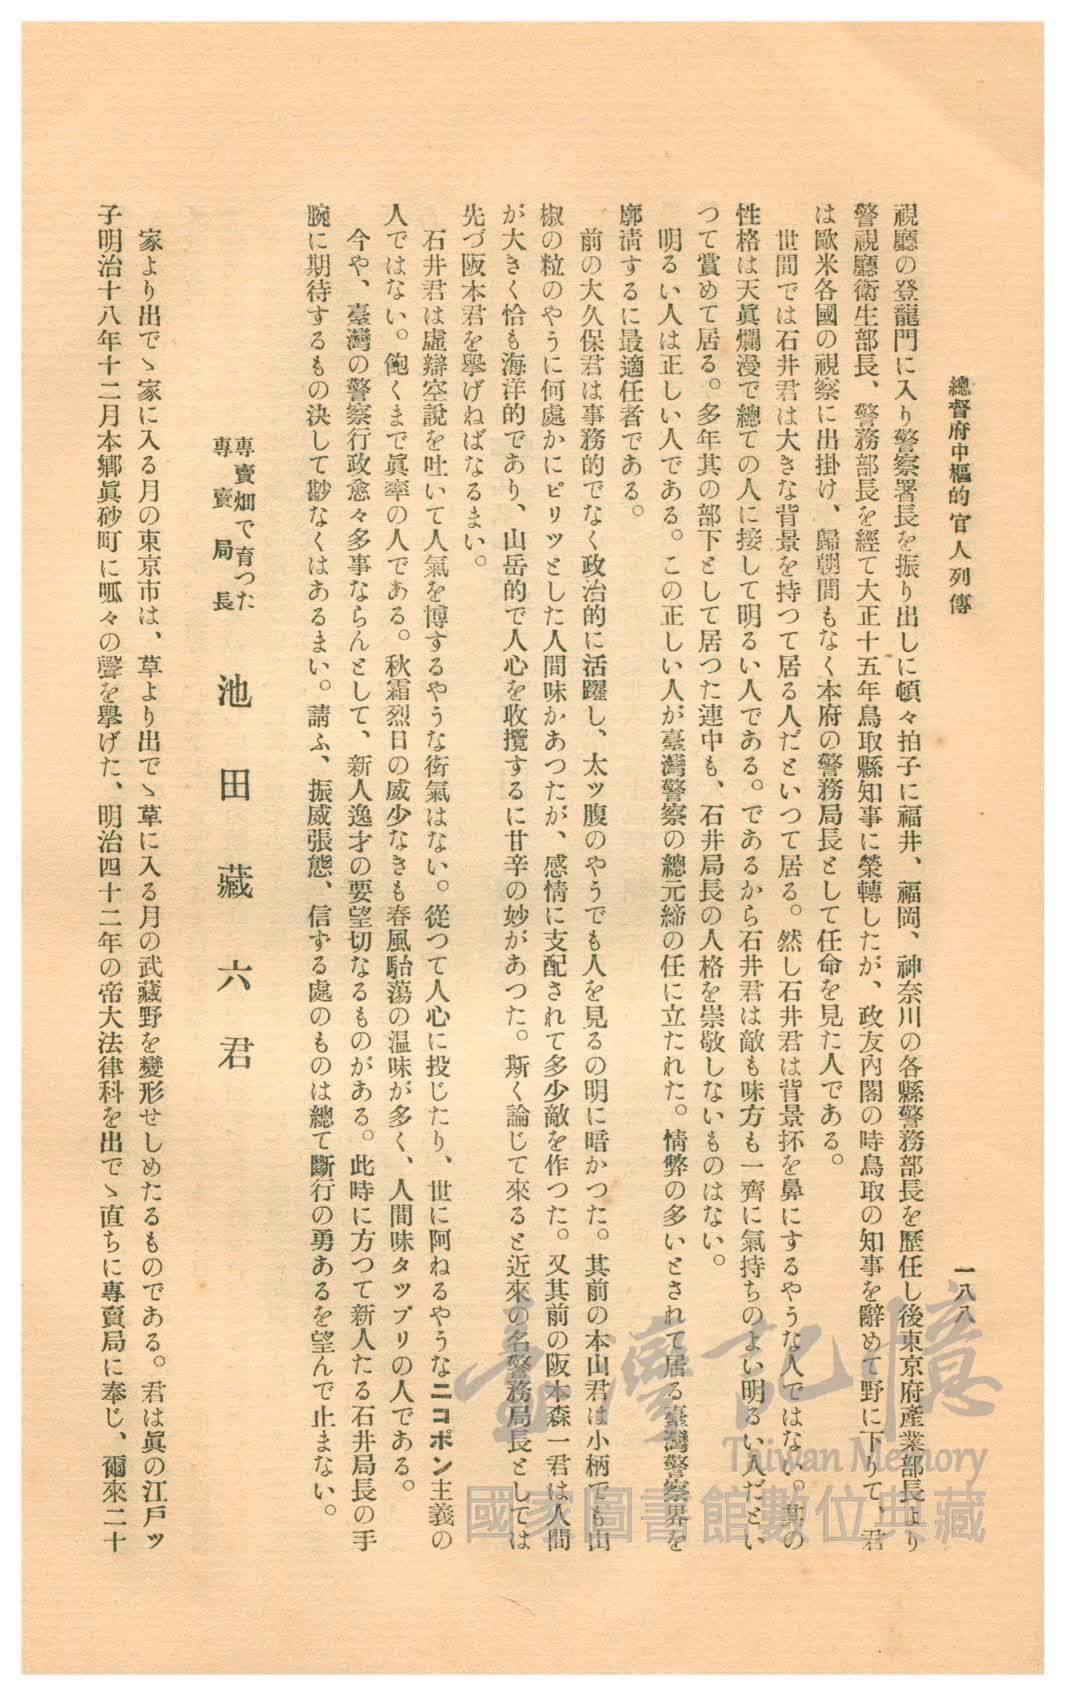 總督府中樞的官人列傳
一八八
視廳の登龍門に入り警察署長を振り出しに頓々拍子に福井、福岡、神奈川の各縣警務部長を歷任し後東京府産業部長より
警視廳衛生部長、警務部長を經て大正十五年鳥取縣知事に榮轉したが、政友內閣の時鳥取の知事を辭めて野に下りて、君
は歐米各國の視察に出掛け、歸朝間もなく本府の警務局長として任命を見た人である。
世間では石井君は大きな背景を持つて居る人だといつて居る。然し石井君は背景抔を鼻にするやうな人ではない。其の
性格は天眞爛漫で總ての人に接して明るい人である。であるから石井君は敵も味方も一齊に氣持ちのよい明るい人だとい
つて賞めて居る。多年其の部下として居つた連中も、石井局長の人格を崇敬しないものはない。
明るい人は正しい人である。この正しい人が臺灣警察の總元締の任に立たれた。情弊の多いとされて居る臺灣警察界を
廓淸するに最適任者である。
前の大久保君は事務的でなく政治的に活躍し、太ッ腹のやうでも人を見るの明に暗かつた。其前の本山君は小柄でも山
椒の粒のやうに何處かにピリッとした人間味かあつたが、感情に支配されて多少敵を作つた。又其前の阪本森一君は人間
が大きく恰も海洋的であり、山岳的で人心を收攬するに甘辛の妙があつた。斯く論じて來ると近來の名警務局長としては
先づ阪本君を擧げねばなるまい。
石井君は虛辯空說を吐いて人氣を博するやうな衒氣はない。從つて人心に投じたり、世に阿ねるやうなニコポン主義の
人ではない。飽くまで眞率の人である。秋霜烈日の威少なきも春風駘蕩の温味が多く、人間味タップリの人である。
今や、臺灣の警察行政愈々多事ならんとして、新人逸才の要望切なるものがある。此時に方つて新人たる石井局長の手
腕に期待するもの決して尠なくはあるまい。請ふ、振威張態、信ずる處のものは總て斷行の勇あるを望んで止まない。
專賣畑で育つた
專賣局長
池田藏六君
家より出でゝ家に入る月の東京市は、草より出でゝ草に入る月の武藏野を變形せしめたるものである。君は眞の江戸ッ
子明治十八年十二月本鄕眞砂町に呱々の聲を擧げた、明治四十二年の帝大法律科を出でゝ直ちに專賣局に奉じ、爾來二十
臺灣記憶
Taiwan Memory
國家圖書館數位典藏